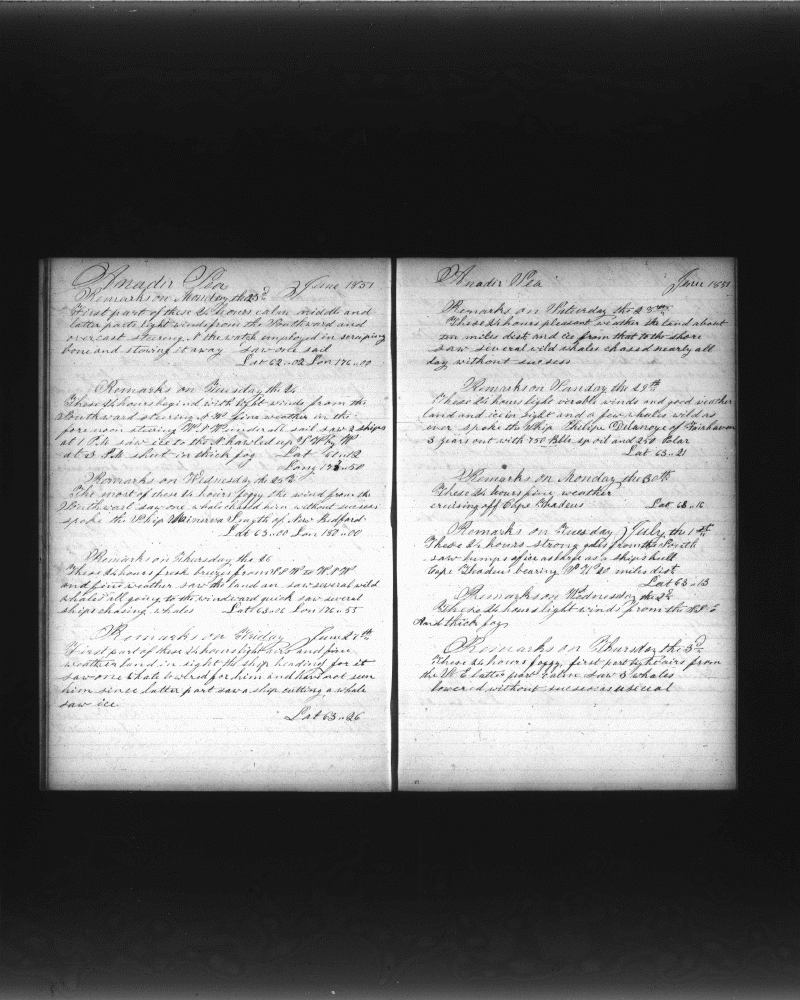 Anadir Sea June 1851
Remarks on Monday the 23d
First part of these 24 hours calm middle and
latter parts light winds from the Southward and
overcast steering N the watch employed in scraping
bone and stowing it away saw one sail
Lat 62 " 02 Lon 176 " 00
Remarks on Tuesday the 24
These 24 hours begins with light winds from the
Southward steering N W fine weather in the
forenoon steering W S W under all sail saw 2 ships
at 1 P M saw ice to the N hawled up S W by W
at 3 P M shut in thick fog Lat 61 " 12
Long 178 " 50
Remarks on Wednesday the 25th
The most of these 24 hours foggy the wind from the
Southward saw one whale chased him without success
spoke the Ship Minerva Smyth of New Bedford
Lat 63 " 00 Lon 180 " 00
Remarks on Thursday the 26
These 24 hours fresh breezes from S S W to W S W
and fine weather saw the land an saw sveral wild
whales all going to the windward quick saw sveral
ships chasing whales Lat 63 " 06 Lon 176 " 55
Remarks on Friday June 27th
First part of these 24 hours light airs and fine
weather land in sight the ship heading for it
saw one whale lowered for him and have not seen
him since latter part saw a ship cutting a whale
saw ice
Lat 63 " 26
Anadir Sea June 1851
Remarks on Saterday the 28th
These 24 hours pleasant weather the land about
miles dist and ice from that to the shore
saw several wild whales chased nearly all
day without success
Remarks on Sunday the 29th
These 24 hours light verable winds and good weather
land and ice in sight and a few whales wild as
ever spoke the Ship Philipe Delanoye of Fairhaven
3 years out with 750 Bbls sp oil and 250 Polar
Lat 63 " 21
Remarks on Monday the 30th
These 24 hours fine weather
cruising off Cape Thadeus Lat 63 " 16
Remarks on Tuesday July the 1st
These 24 hours strong gales from the South
saw lumps of ice as large as a ships hull
Cape Thadeus bearing W 20 miles dist
Lat 63 " 13
Remarks on Wednesday the 2d
These 24 hours light winds from the
and thick fog
Remarks on Thursday the 3d
These 24 hours foggy, first part light airs from
the N E latter part calm saw 3 whales
lowered without success as useual